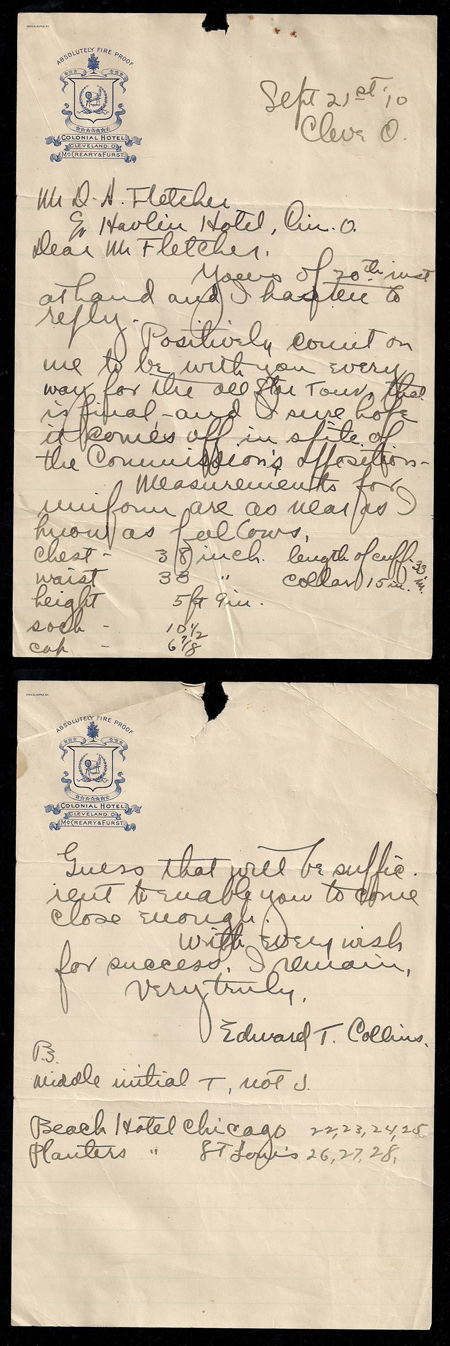 ABSOLUTELY FIRE PROOF
COLONIAL HOTEL
CLEVELAND, O.
McCREARY & FURST.
Sept 21st '10
Cleve O.
Mr D. A. Fletcher
℅ Havlin Hotel, Cin. O.
Dear Mr Fletcher.
Yours of 20th inst
at hand and I hasten to
reply.
Positively count on
me to be with you every
way for the all Star Tour, that
is final - and I sure hope
it comes off in spite of
the Commission's opposition -
Measurements for
uniform are as near as I
know as follows,
chest - 38 inch. length of cuff. 33 in.
waist 33 " collar 15 in.
height 5 ft 9 in.
sock - 10 1/2
cap - 6 7/8
ABSOLUTELY FIRE PROOF
COLONIAL HOTEL
CLEVELAND, O.
McCREARY & FURST.
Guess that will be suffic-
ient to enable you to come
close enough.
With every wish
for success, I remain,
Very truly,
Edward T. Collins.
P.S.
Middle initial T, not J.
Beach Hotel Chicago 22, 23, 24, 25
Planters " St Louis 26, 27, 28,